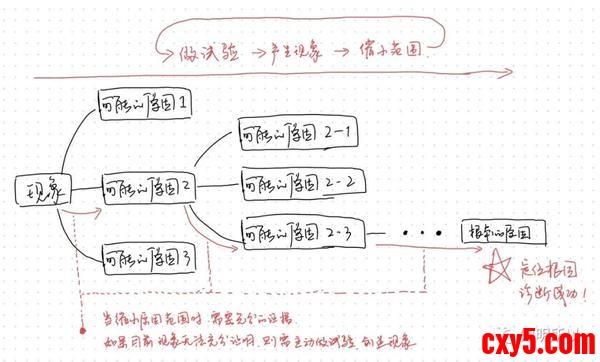 做试验 → 产生现象 → 缩小范围
可能的原因1
可能的原因 2-1
现象
可能的原因2
可能的原因 2-2
可能的原因 2-3
• • •
根本的原因
可能的原因3
定位根因
诊断成功！
当缩小原因范围时，需要充分的证据
如果目前现象无法充分证明，则需主动做试验，创造现象
cxy5.com